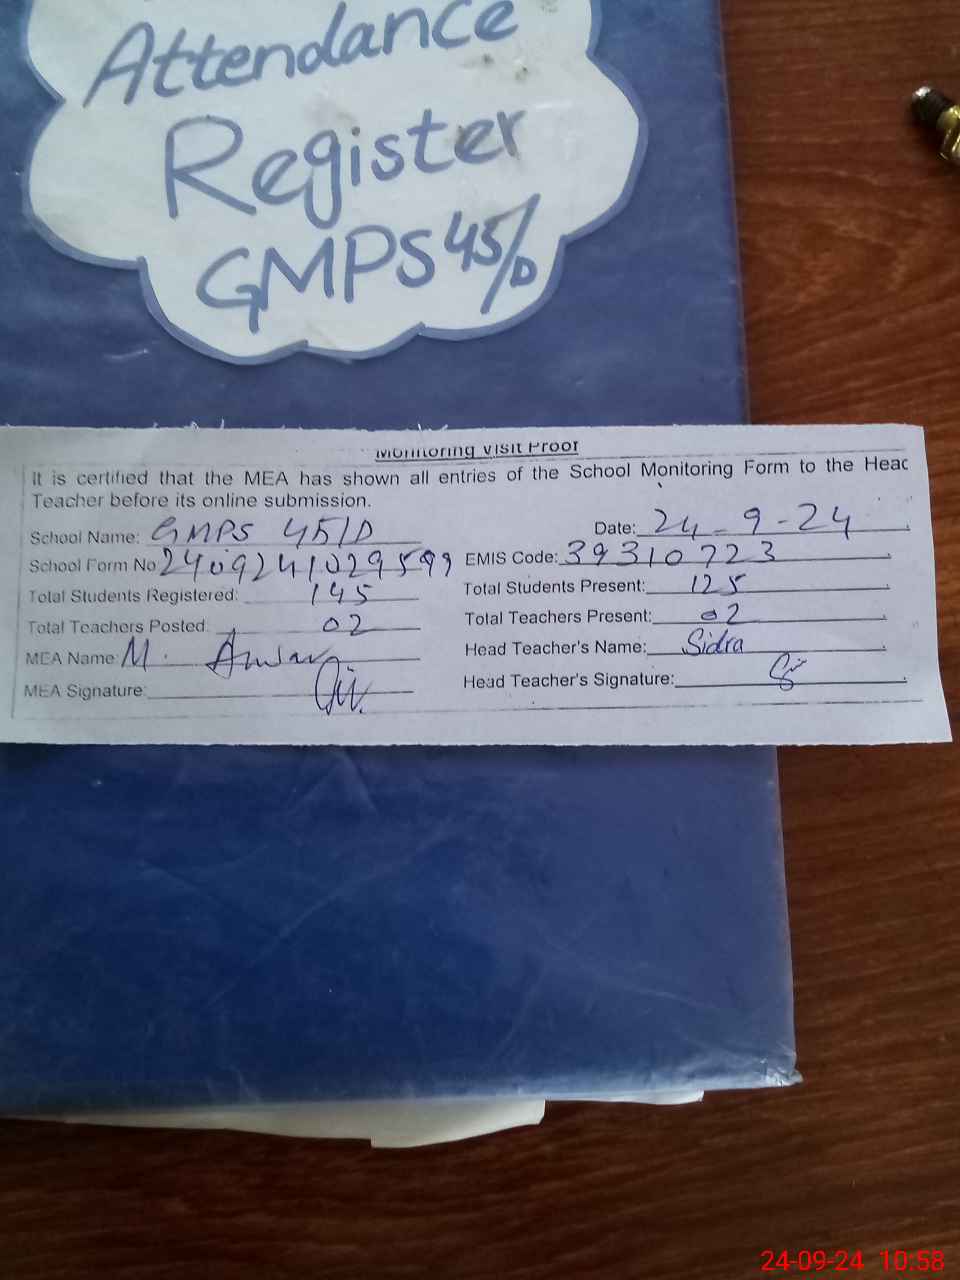 Attendance
Register
GMPS 45/D
Monitoring Visit Proof
It is certified that the MEA has shown all entries of the School Monitoring Form to the Head
Teacher before its online submission.
School Name: GMPS 45/D Date: 24-9-24
School Form No 2409241029599 EMIS Code: 39310723
Total Students Registered: 145 Total Students Present: 125
Total Teachers Posted: 02 Total Teachers Present: 02
MEA Name: M. Anwar Head Teacher's Name: Sidra
MEA Signature: Head Teacher's Signature:
24-09-24 10:58